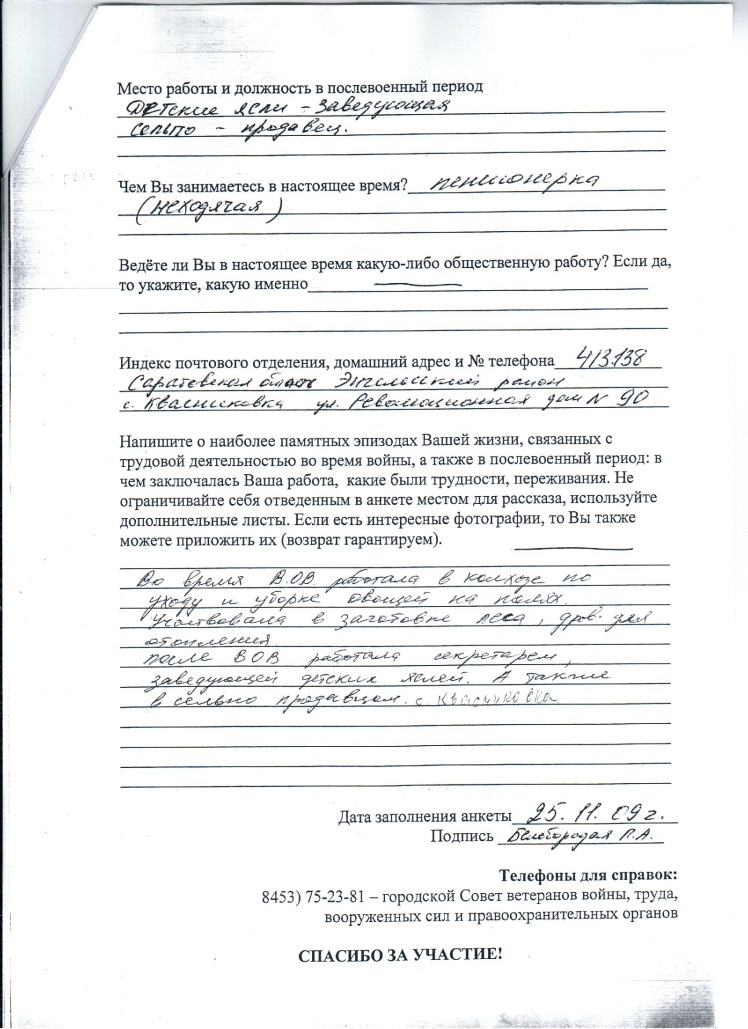 Место работы и должность в послевоенный период
Детские ясли – заведующая
сельпо – продавец.
Чем Вы занимаетесь в настоящее время? пенсионерка
(неходячая)
Ведёте ли Вы в настоящее время какую-либо общественную работу? Если да,
то укажите, какую именно —
Индекс почтового отделения, домашний адрес и № телефона 413138
Саратовская область Энгельсский район
с. Квасниковка ул. Революционная дом N 90
Напишите о наиболее памятных эпизодах Вашей жизни, связанных с
трудовой деятельностью во время войны, а также в послевоенный период: в
чем заключалась Ваша работа, какие были трудности, переживания. Не
ограничивайте себя отведенным в анкете местом для рассказа, используйте
дополнительные листы. Если есть интересные фотографии, то Вы также
можете приложить их (возврат гарантируем). —
Во время В.О.В. работала в колхозе по
уходу и уборке овощей на полях.
Участвовала в заготовке леса, дров. для
отопления.
после ВОВ работала секретарем,
заведующей детских яслей. А также
в сельпо продавцом. с. Квасниковка
Дата заполнения анкеты 25. 11. 09 г.
Подпись Белобородая П.А.
Телефоны для справок:
8453) 75-23-81 – городской Совет ветеранов войны, труда,
вооруженных сил и правоохранительных органов
СПАСИБО ЗА УЧАСТИЕ!